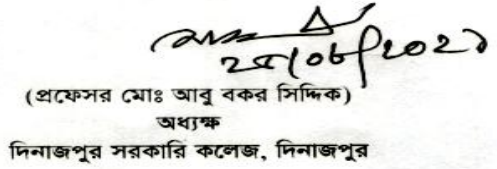 (প্রফেসর মোঃ আবু বকর সিদ্দিক)
অধ্যক্ষ
দিনাজপুর সরকারি কলেজ, দিনাজপুর